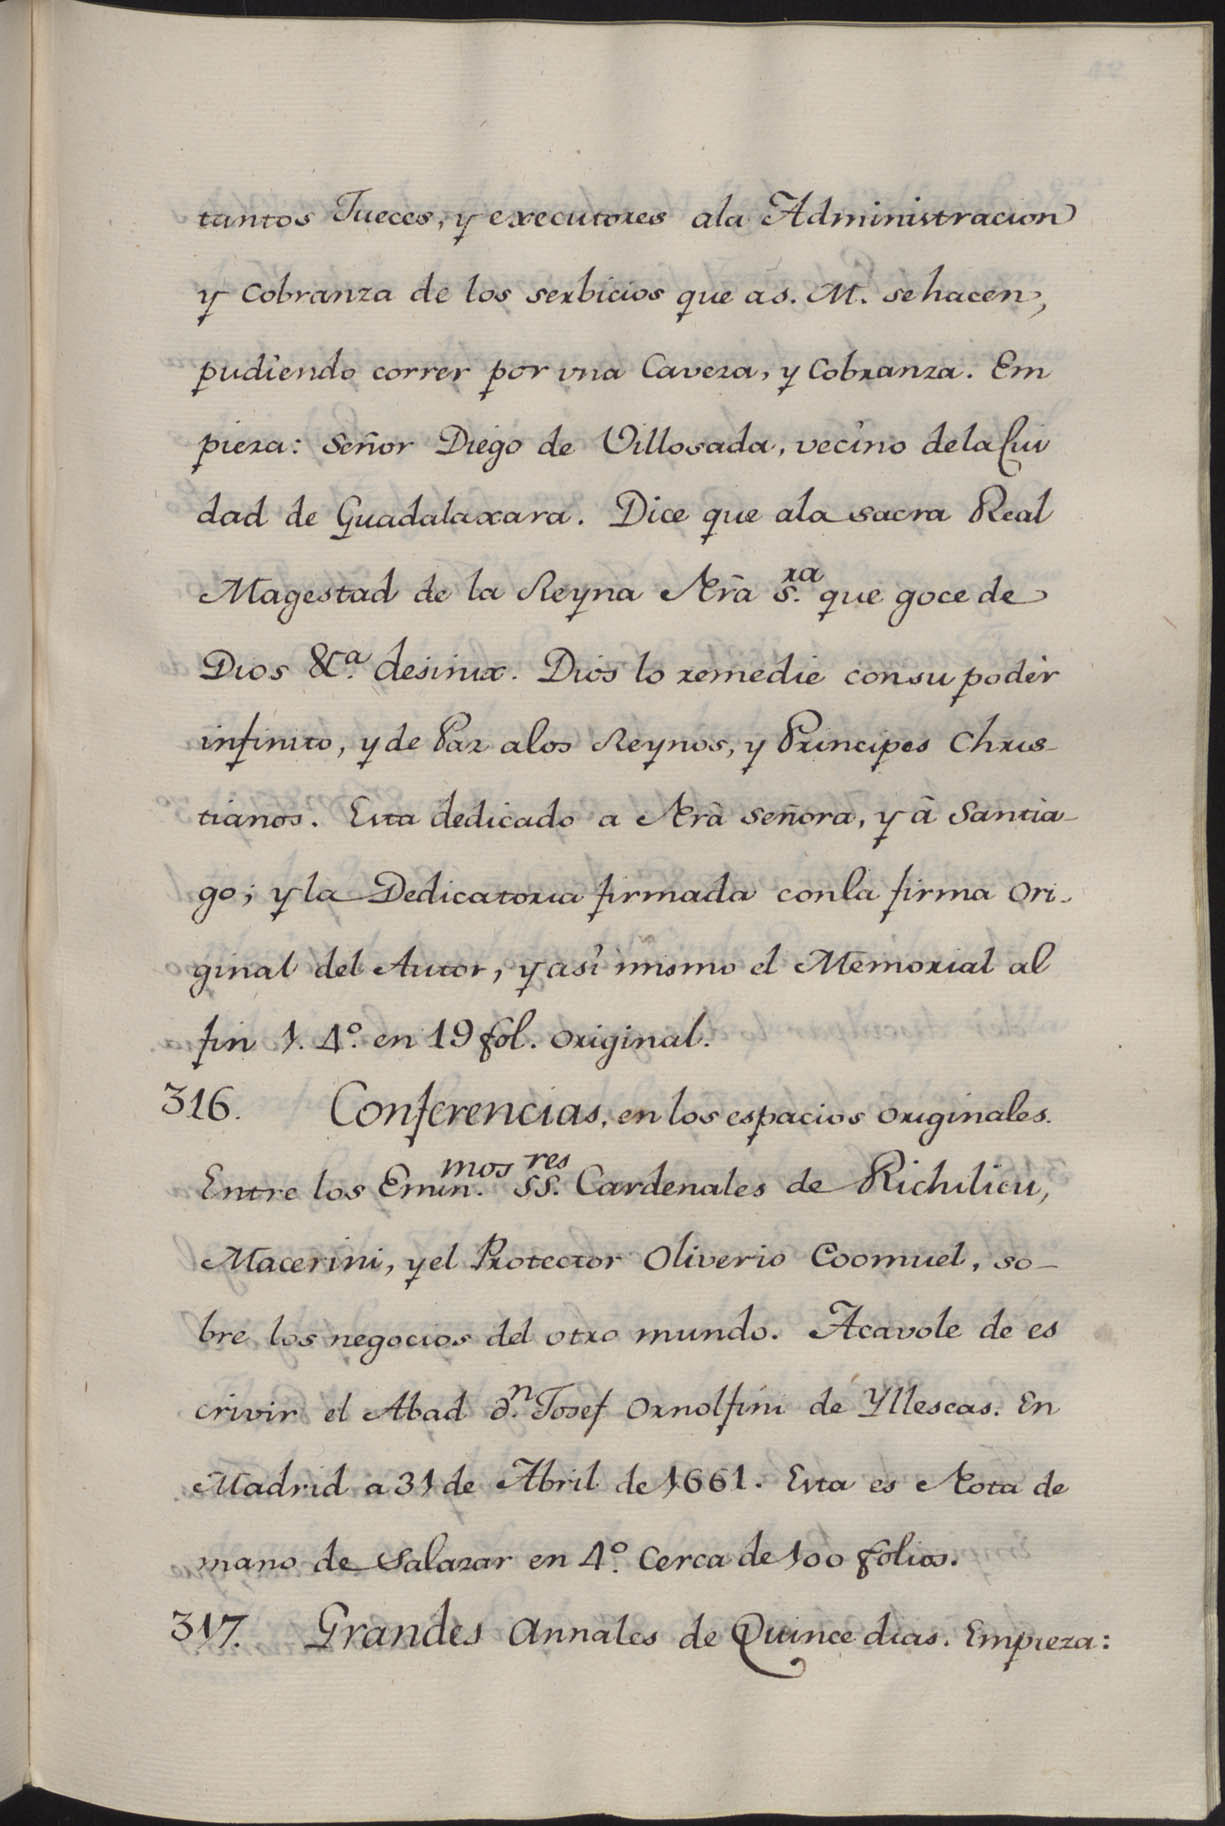 tantos Jueces, y executores ala Administracion
y Cobranza de los serbicios que a S. M. se hacen,
pudiendo correr por vna Caveza, y Cobranza. Em
pieza: Señor Diego de Villosada, vecino dela Ciu
dad de Guadalaxara. Dice que ala sacra Real
Magestad de la Reyna Nrã S.ra que goce de
Dios &c.a desinix. Dios lo remedie con su poder
infinito, y de Paz alos Reynos, y Principes Chris-
tianos. Esta dedicado a Nrã Señora, y â Santia-
go; y la Dedicatoria firmada con la firma ori-
ginal del Autor, y asi mismo el Memorial al
fin 1. 4.º en 19 fol. original.
316. Conferencias, en los espacios originales.
Entre los Emin.mos SS.res Cardenales de Richilieu,
Macerini, y el Protector Oliverio Coomuel, so-
bre los negocios del otro mundo. Acavole de es
crivir el Abad d.n Josef Ornolfini de Yllescas. En
Madrid a 31 de Abril de 1661. Esta es Nota de
mano de Salazar en 4.º cerca de 100 folios.
317. Grandes Annales de Quince dias. Empieza: